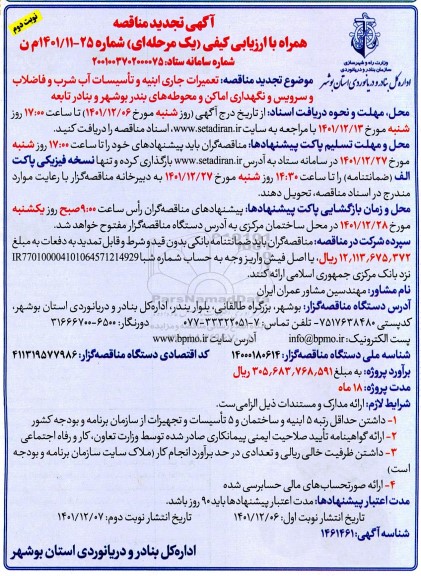 نوبت دوم
آگهی تجدید مناقصه
همراه با ارزیابی کیفی (یک مرحله‌ای) شماره ۲۵-۱۴۰۱/۱۱م ن
شماره سامانه ستاد: ۲۰۰۱۰۰۳۷۰۲۰۰۰۰۷۵
وزارت راه و شهرسازی
سازمان بنادر و دریانوردی
اداره کل بنادر و دریانوردی استان بوشهر
موضوع تجدید مناقصه: تعمیرات جاری ابنیه و تأسیسات آب شرب و فاضلاب
و سرویس و نگهداری اماکن و محوطه‌های بندر بوشهر و بنادر تابعه
محل، مهلت و نحوه دریافت اسناد: از تاریخ درج آگهی (روز شنبه مورخ ۱۴۰۱/۱۲/۰۶) تا ساعت ۱۷:۰۰ روز
شنبه مورخ ۱۴۰۱/۱۲/۱۳ با مراجعه به سایت www.setadiran.ir، اسناد مناقصه را دریافت کنید.
محل و مهلت تسلیم پاکت پیشنهادها: مناقصه‌گران باید پیشنهادهای خود را تا ساعت ۱۷:۰۰ روز شنبه
مورخ ۱۴۰۱/۱۲/۲۷ در سامانه ستاد به آدرس www.setadiran.ir بارگذاری کرده و تنها نسخه فیزیکی پاکت
الف (ضمانتنامه) را تا ساعت ۱۴:۳۰ روز شنبه مورخ ۱۴۰۱/۱۲/۲۷ به دبیرخانه مناقصه‌گزار با رعایت موارد
مندرج در اسناد مناقصه، تحویل دهند.
محل و زمان بازگشایی پاکت پیشنهادها: پیشنهادهای مناقصه‌گران رأس ساعت ۹:۰۰صبح روز یکشنبه
مورخ ۱۴۰۱/۱۲/۲۸ در محل ساختمان مرکزی به آدرس دستگاه مناقصه‌گزار مفتوح خواهد شد.
سپرده شرکت در مناقصه: مناقصه‌گران باید ضمانتنامه بانکی بدون قید و شرط و قابل تمدید به دفعات به مبلغ
۱۲,۱۱۳,۶۷۵,۳۷۲ ریال، یا اصل فیش واریز وجه به حساب شماره شبا IR770100004101064571214929
نزد بانک مرکزی جمهوری اسلامی ارائه کنند.
نام مشاور: مهندسین مشاور عمران ایران
آدرس دستگاه مناقصه‌گزار: بوشهر، بزرگراه طالقانی، بلوار بندر، اداره‌کل بنادر و دریانوردی استان بوشهر،
کدپستی ۷۵۱۷۶۳۸۴۸۰- تلفن تماس: ۷-۳۳۳۲۲۰۵۱-۰۷۷ دورنگار: ۶۵۰۰-۳۱۶۶۷۰۰
پست الکترونیک: info@bpmo.ir آدرس سایت www.bpmo.ir
شناسه ملی دستگاه مناقصه‌گزار: ۱۴۰۰۰۱۸۰۶۱۴ کد اقتصادی دستگاه مناقصه‌گزار: ۴۱۱۳۱۹۵۷۷۹۸۶
برآورد پروژه: به مبلغ ۳۰۵,۶۸۳,۷۶۸,۵۹۱ ریال
مدت پروژه: ۱۸ ماه
شرایط لازم: ارائه مدارک و مستندات ذیل الزامی‌ست.
۱- داشتن حداقل رتبه ۵ ابنیه و ساختمان و ۵ تأسیسات و تجهیزات از سازمان برنامه و بودجه کشور
۲- ارائه گواهینامه تأیید صلاحیت ایمنی پیمانکاری صادر شده توسط وزارت تعاون، کار و رفاه اجتماعی
۳- داشتن ظرفیت خالی ریالی و تعدادی در حد برآورد انجام کار (ملاک سایت سازمان برنامه و بودجه
است)
۴- ارائه صورتحساب‌های مالی حسابرسی شده
مدت اعتبار پیشنهادها: مدت اعتبار پیشنهادها باید ۹۰ روز باشد.
تاریخ انتشار نوبت اول: ۱۴۰۱/۱۲/۰۶ تاریخ انتشار نوبت دوم: ۱۴۰۱/۱۲/۰۷
شناسه آگهی: ۱۴۶۱۴۶۱
اداره‌کل بنادر و دریانوردی استان بوشهر